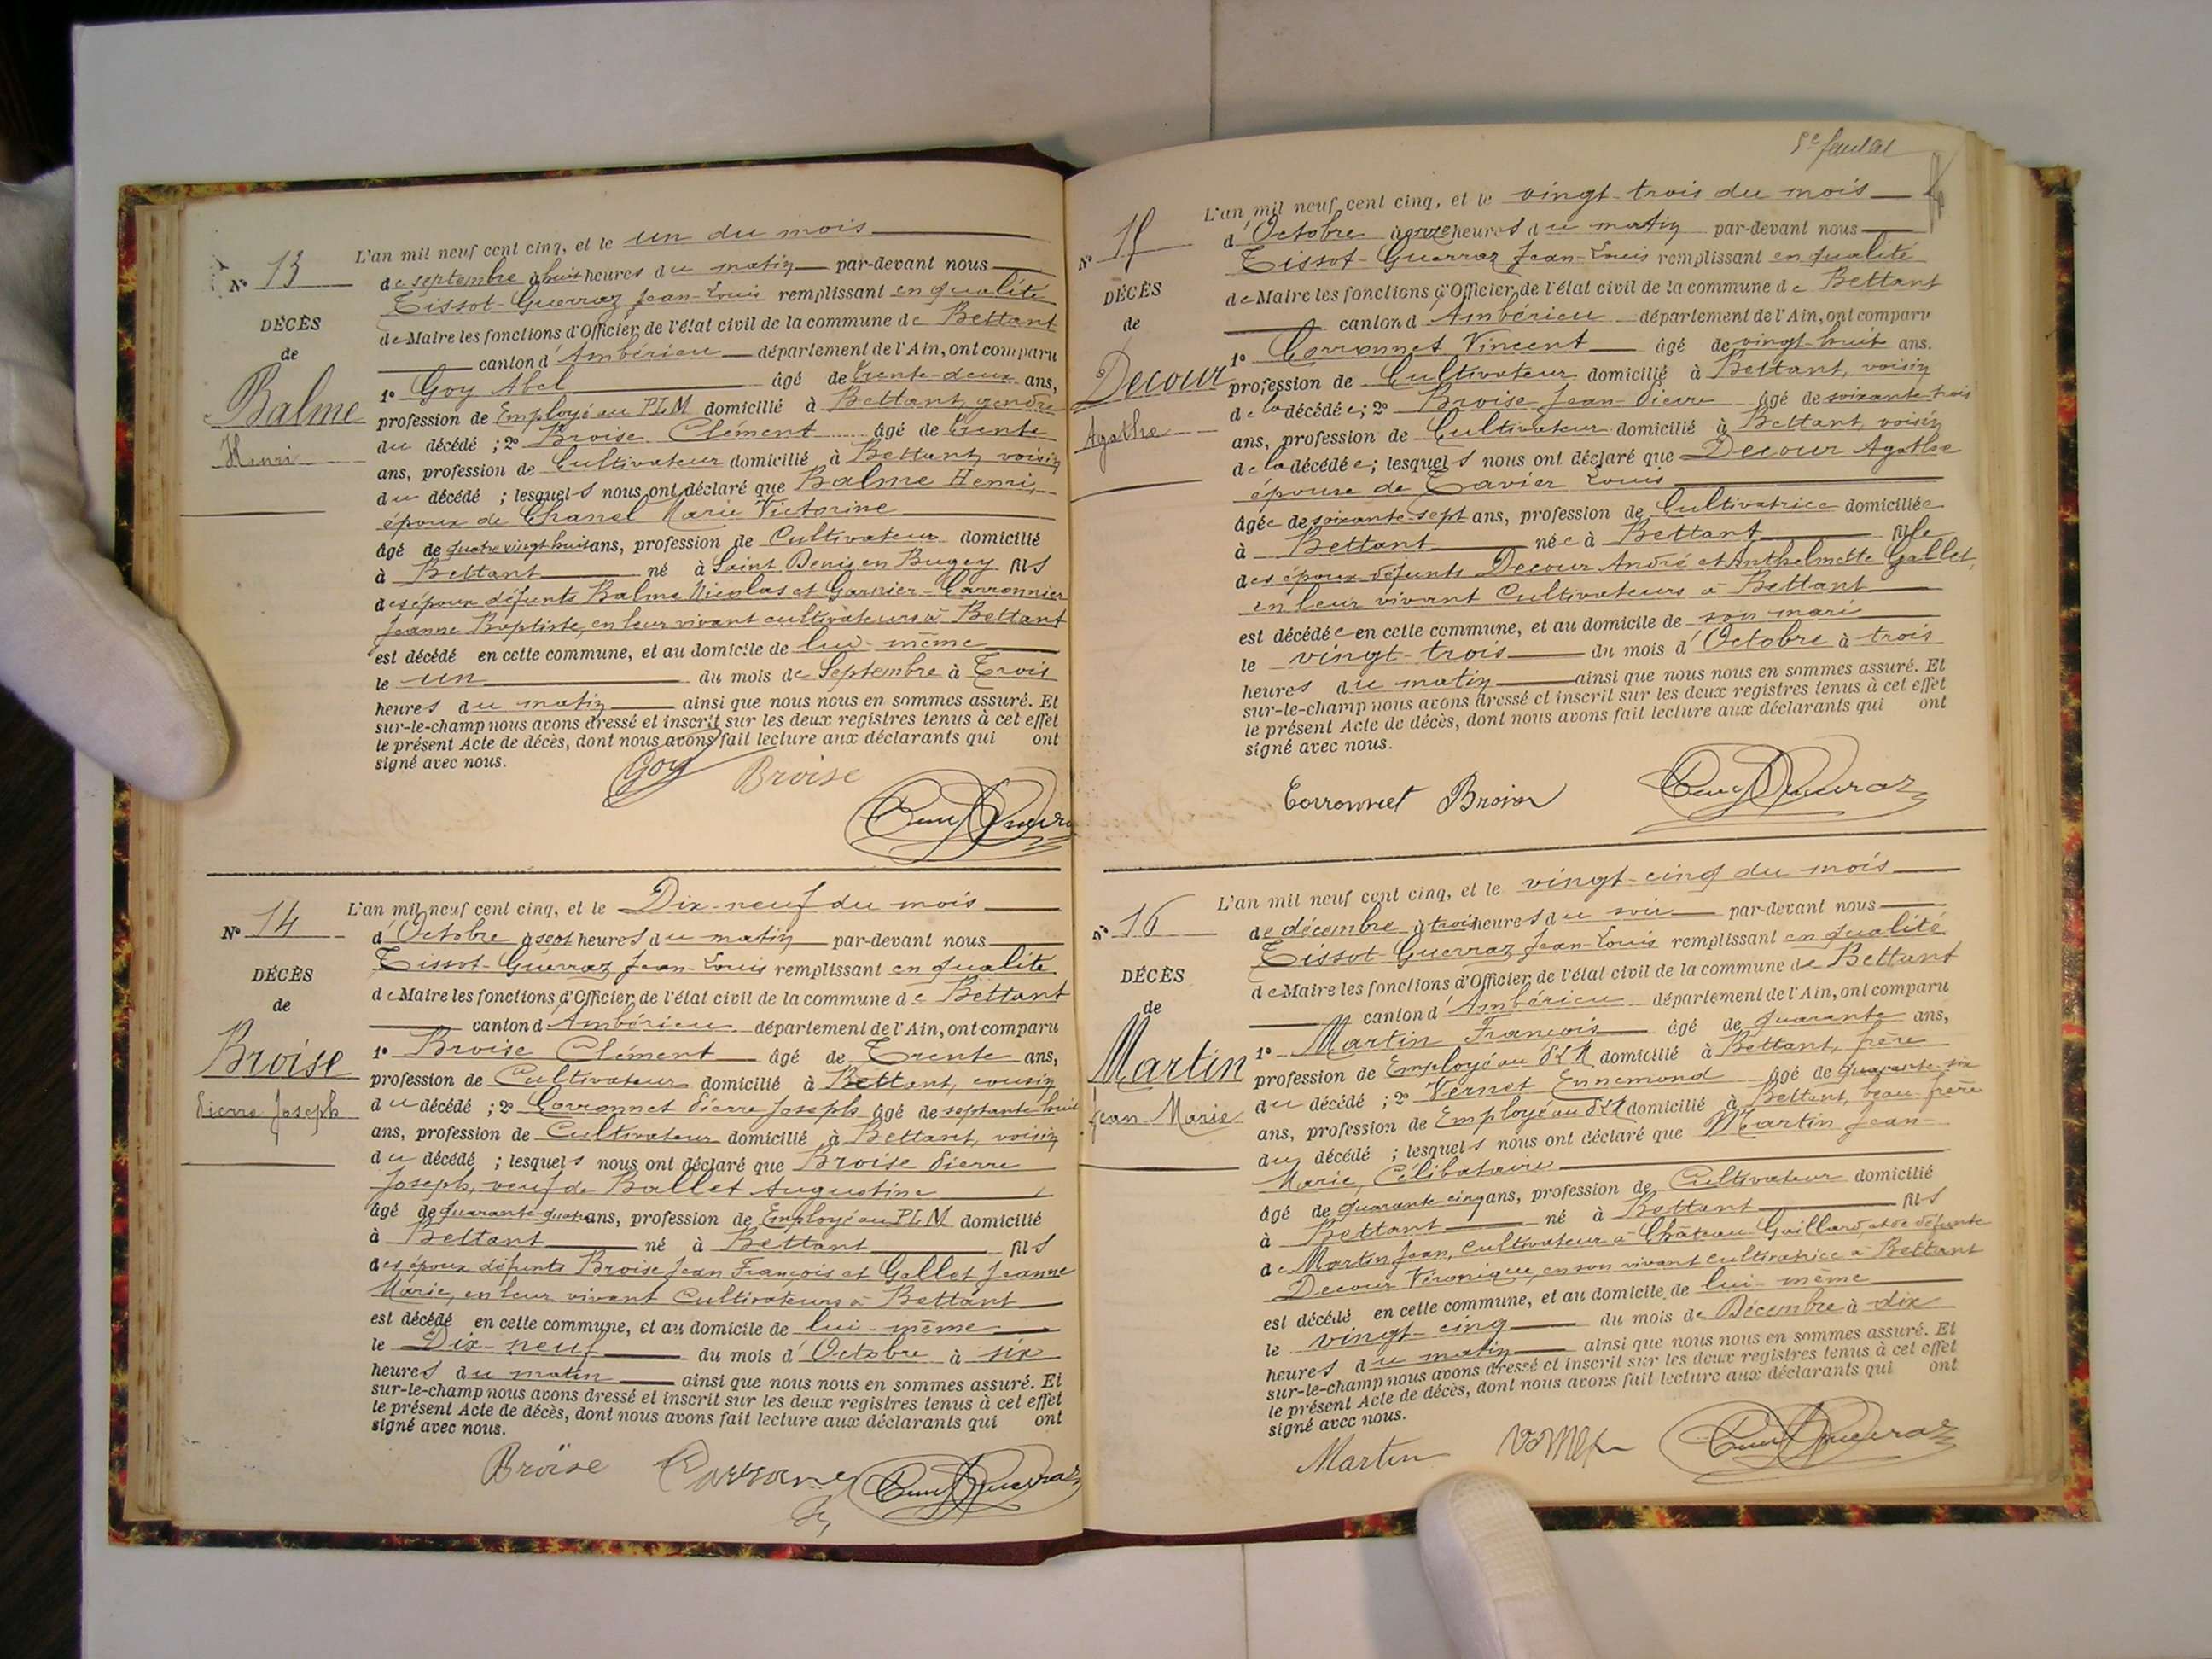 N° 13
DÉCÈS
de
Balme
Henri
L'an mil neuf cent cinq, et le un du mois
de septembre à huit heures du matin par-devant nous
Tissot-Guerraz Jean-Louis remplissant en qualité
de Maire les fonctions d'Officier de l'état civil de la commune de Bettant
canton d'Ambérieu département de l'Ain, ont comparu
1° Goy Abel âgé de trente-deux ans,
profession de Employé au PLM domicilié à Bettant, gendre
du décédé ; 2° Broise Clément âgé de trente
ans, profession de Cultivateur domicilié à Bettant, voisin
du décédé ; lesquels nous ont déclaré que Balme Henri,
époux de Chanel Marie Victorine
âgé de quatre vingt huit ans, profession de Cultivateur domicilié
à Bettant né à Saint Denis en Bugey fils
des époux défunts Balme Nicolas et Garnier-Carronnier
Jeanne Baptiste, en leur vivant cultivateurs à Bettant
est décédé en cette commune, et au domicile de lui-même
le un du mois de Septembre à Trois
heures du matin ainsi que nous nous en sommes assuré. Et
sur-le-champ nous avons dressé et inscrit sur les deux registres tenus à cet effet
le présent Acte de décès, dont nous avons fait lecture aux déclarants qui ont
signé avec nous.
Goy Broise
N° 14
DÉCÈS
de
Broise
Pierre Joseph
L'an mil neuf cent cinq, et le Dix-neuf du mois
d'Octobre à sept heures du matin par-devant nous
Tissot-Guerraz Jean-Louis remplissant en qualité
de Maire les fonctions d'Officier de l'état civil de la commune de Bettant
canton d'Ambérieu département de l'Ain, ont comparu
1° Broise Clément âgé de Trente ans,
profession de Cultivateur domicilié à Bettant, cousin
du décédé ; 2° Corronnet Pierre Joseph âgé de septante huit
ans, profession de Cultivateur domicilié à Bettant, voisin
du décédé ; lesquels nous ont déclaré que Broise Pierre
Joseph, veuf de Ballet Augustine
âgé de quarante-quatre ans, profession de Employé au PLM domicilié
à Bettant né à Bettant fils
des époux défunts Broise Jean François et Gallet Jeanne
Marie, en leur vivant Cultivateurs à Bettant
est décédé en cette commune, et au domicile de lui-même
le Dix-neuf du mois d'Octobre à six
heures du matin ainsi que nous nous en sommes assuré. Et
sur-le-champ nous avons dressé et inscrit sur les deux registres tenus à cet effet
le présent Acte de décès, dont nous avons fait lecture aux déclarants qui ont
signé avec nous.
Broise
5e feuillet
N° 15
DÉCÈS
de
Decour
Agathe
L'an mil neuf cent cinq, et le vingt-trois du mois
d'Octobre à onze heures du matin par-devant nous
Tissot-Guerraz Jean-Louis remplissant en qualité
de Maire les fonctions d'Officier de l'état civil de la commune de Bettant
canton d'Ambérieu département de l'Ain, ont comparu
1° Corronnet Vincent âgé de vingt-huit ans.
profession de Cultivateur domicilié à Bettant, voisin
de la décédée ; 2° Broise Jean-Pierre âgé de soixante trois
ans, profession de Cultivateur domicilié à Bettant, voisin
de la décédée ; lesquels nous ont déclaré que Decour Agathe
épouse de Tavier Louis
âgée de soixante-sept ans, profession de Cultivatrice domiciliée
à Bettant née à Bettant fille
des époux défunts Decour André et Anthelmette Gallet,
en leur vivant Cultivateurs à Bettant
est décédée en cette commune, et au domicile de son mari
le vingt-trois du mois d'Octobre à trois
heures du matin ainsi que nous nous en sommes assuré. Et
sur-le-champ nous avons dressé et inscrit sur les deux registres tenus à cet effet
le présent Acte de décès, dont nous avons fait lecture aux déclarants qui ont
signé avec nous.
Corronnet Broise
N° 16
DÉCÈS
de
Martin
Jean-Marie
L'an mil neuf cent cinq, et le vingt-cinq du mois
de décembre à trois heures du soir par-devant nous
Tissot-Guerraz Jean-Louis remplissant en qualité
de Maire les fonctions d'Officier de l'état civil de la commune de Bettant
canton d'Ambérieu département de l'Ain, ont comparu
1° Martin François âgé de quarante ans,
profession de Employé au PLM domicilié à Bettant, frère
du décédé ; 2° Vernet Ennemond âgé de quarante-six
ans, profession de Employé au PLM domicilié à Bettant, beau-frère
du décédé ; lesquels nous ont déclaré que Martin Jean-
Marie, Célibataire
âgé de quarante cinq ans, profession de Cultivateur domicilié
à Bettant né à Bettant fils
de Martin Jean, cultivateur à Château Gaillard, et de défunte
Decour Véronique, en son vivant cultivatrice à Bettant
est décédé en cette commune, et au domicile de lui-même
le vingt-cinq du mois de Décembre à dix
heures du matin ainsi que nous nous en sommes assuré. Et
sur-le-champ nous avons dressé et inscrit sur les deux registres tenus à cet effet
le présent Acte de décès, dont nous avons fait lecture aux déclarants qui ont
signé avec nous.
Martin Vernet